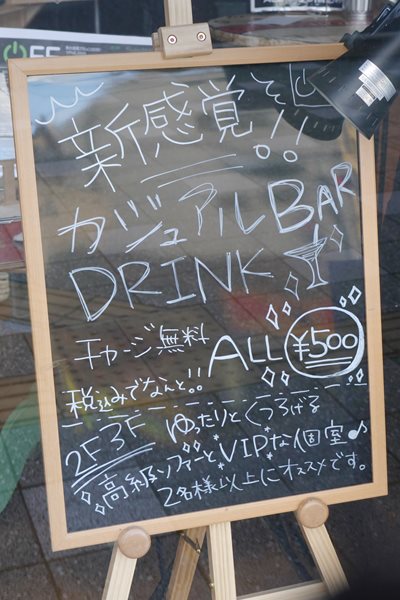 新感覚!!
カジュアルBAR
DRINK
チャージ無料
ALL ¥500
税込みでなんと!!
2F3F ゆったりとくつろげる
高級ソファーとVIPな個室♪
2名様以上にオススメです。